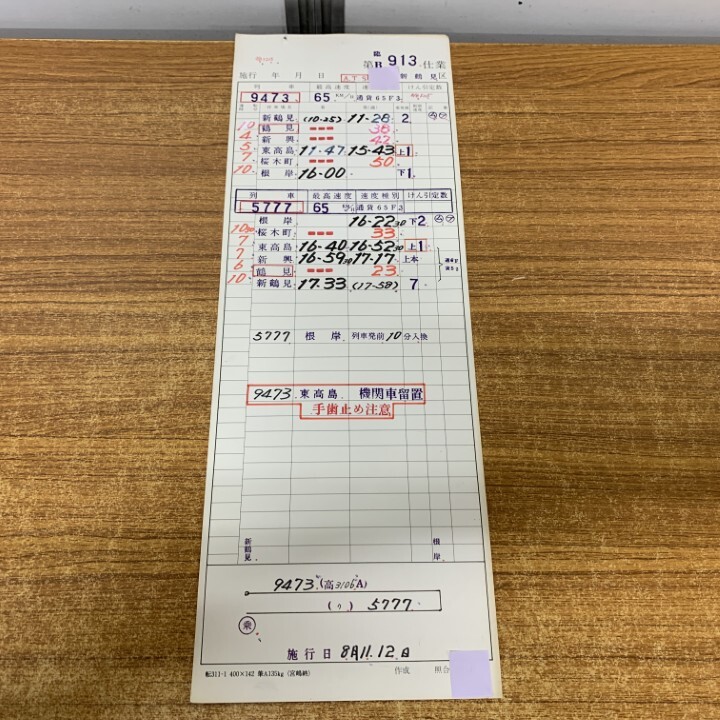 臨
第B 913 仕業
施行 年 月 日 ATS 新鶴見区
列車 最高速度 速度種別 けん引定数
9473 65 km/h 通貨65F3
新鶴見 (10-25) 11-28 2
10 鶴見 === 38
4 新興 === 42
5 東高島 11-47 15-43 上1
7 桜木町 === 50
10 根岸 16-00 下1
列車 最高速度 速度種別 けん引定数
5777 65 通貨65F3
根岸 16-22 30 下2
10 30 桜木町 === 33
7 東高島 16-40 16-52 30 上1
7 新興 16-59 30 17-17 上本
6 鶴見 === 23
10 新鶴見 17-33 (17-58) 7
5777 根岸 列車発前10分入換
9473 東高島 機関車留置
手歯止め注意
新鶴見 根岸
9473 (高3106A)
(〃) 5777
乗
施行日 8月11.12日
転311-1 400×142 葉A135kg (宮嶋納) 作成 照合